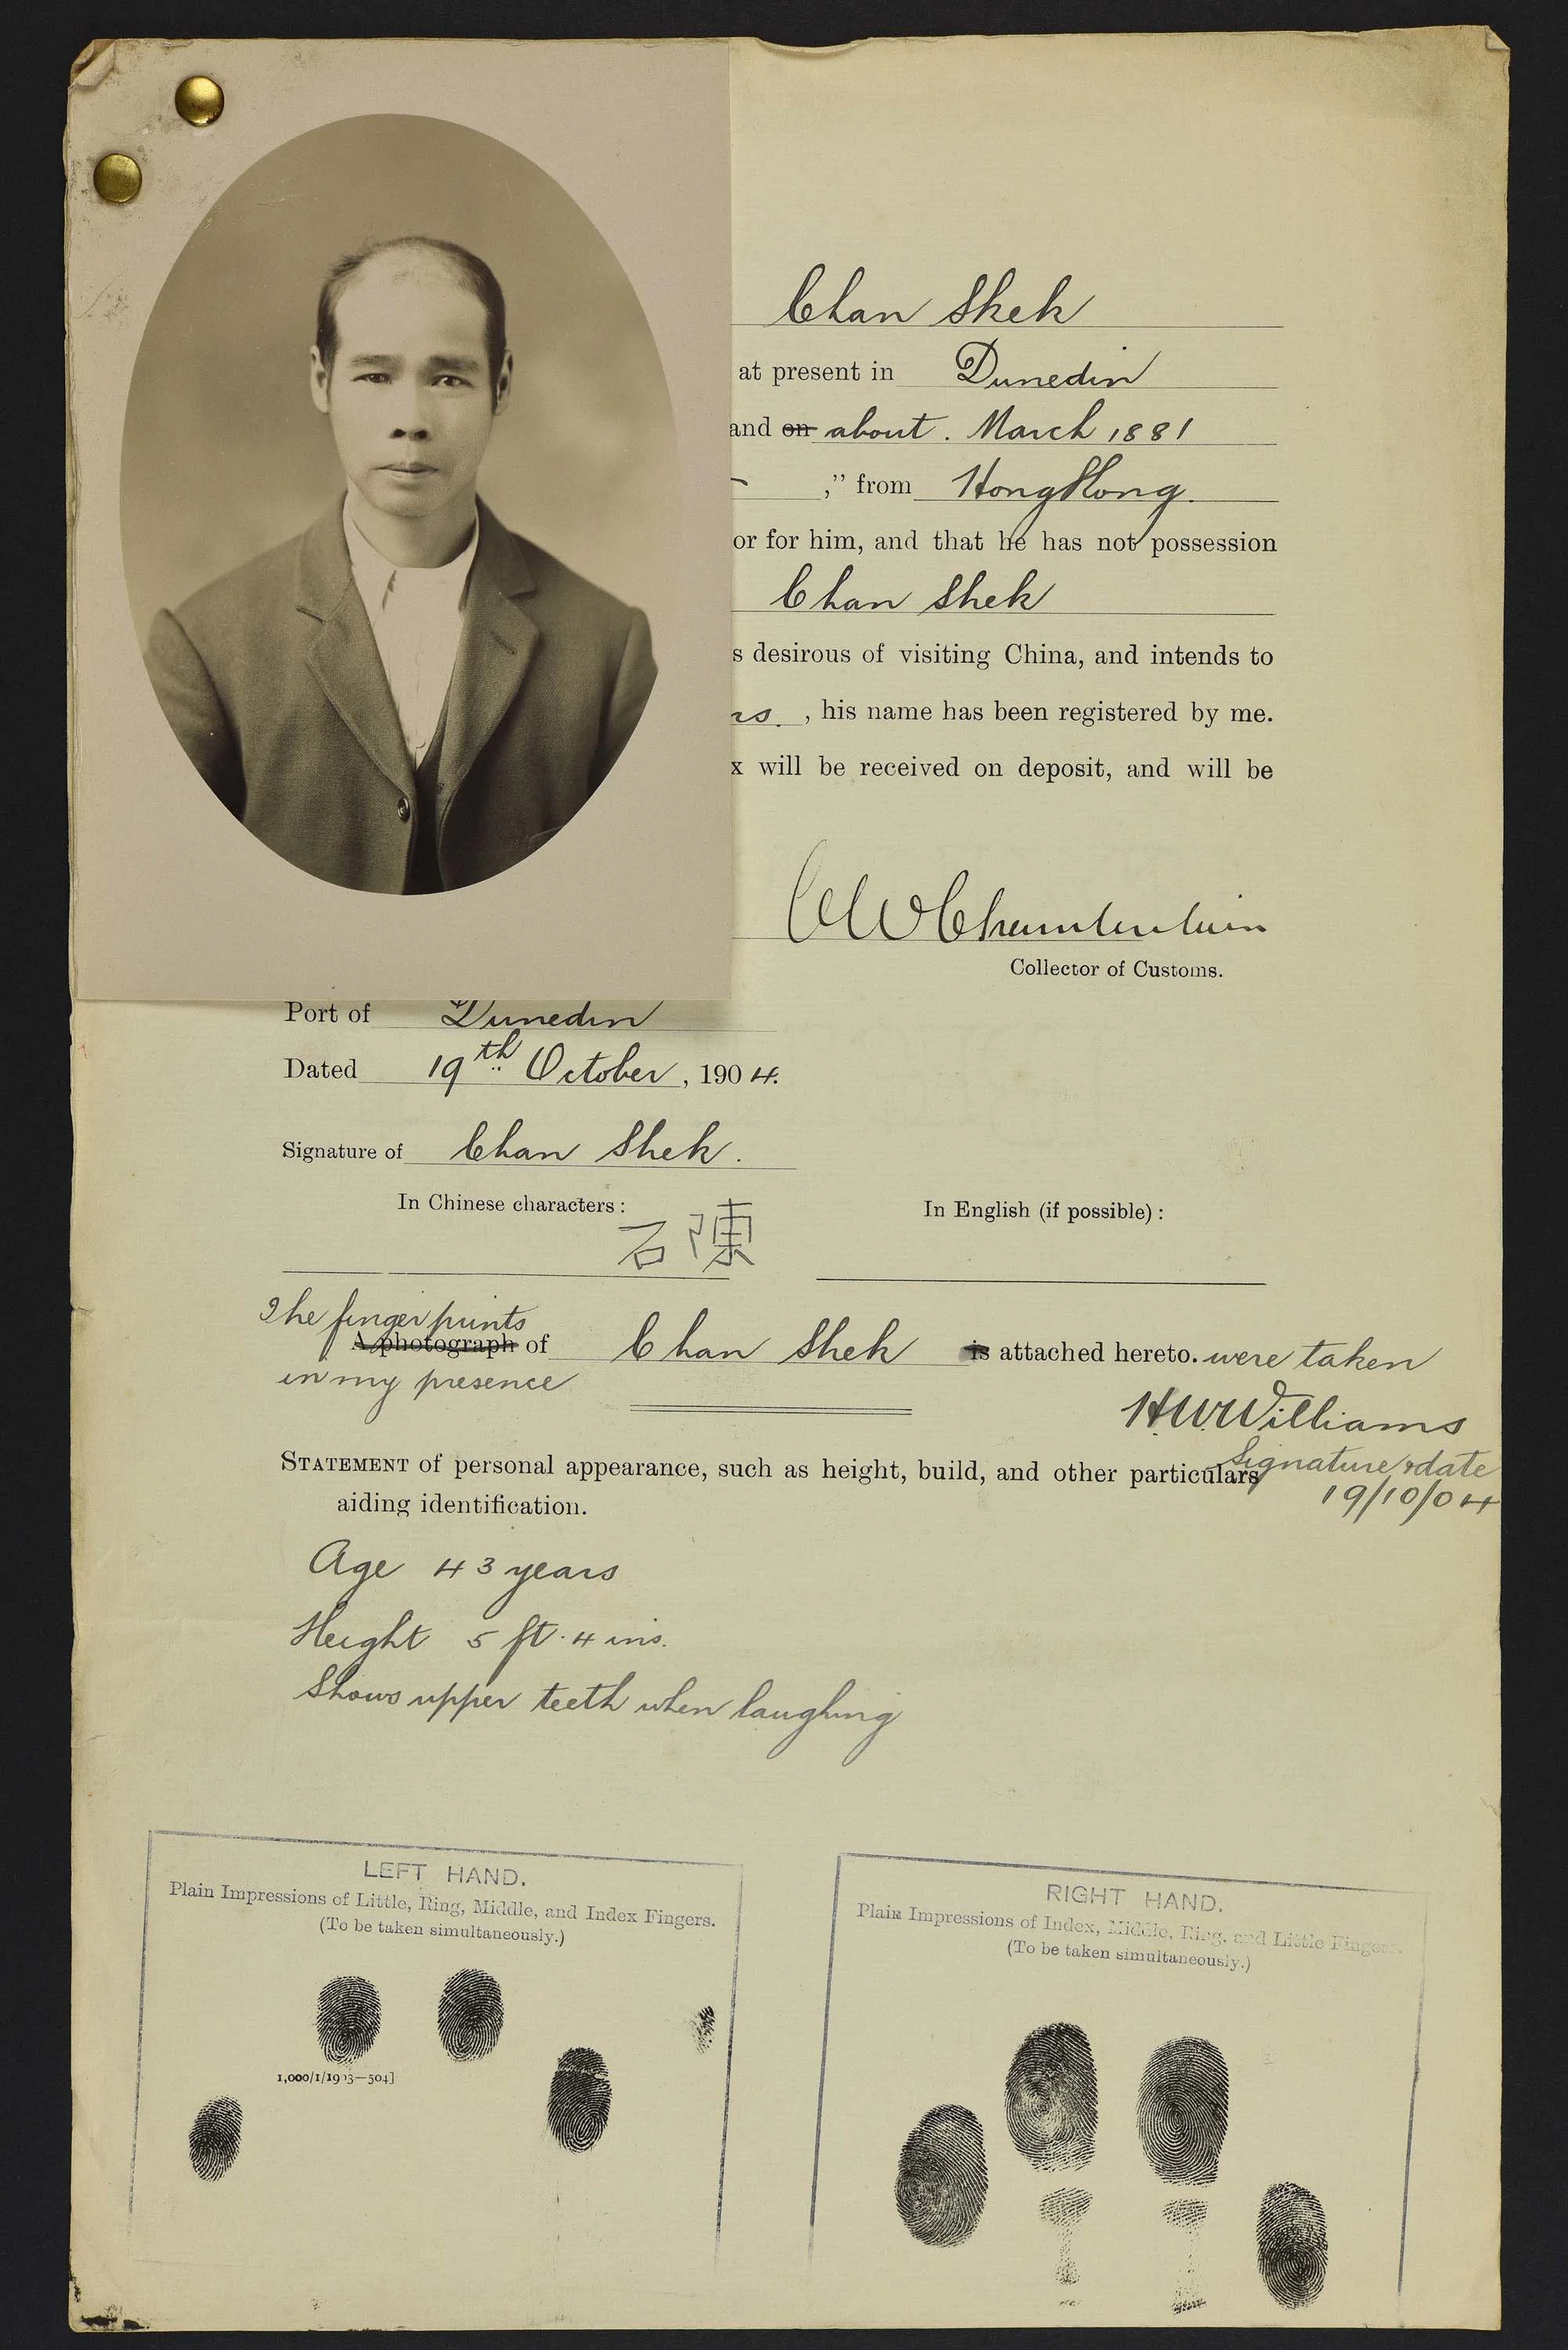 Chan Shek
at present in Dunedin
and on about. March 1881
," from Hong Kong.
or for him, and that he has not possession
Chan Shek
s desirous of visiting China, and intends to
rs. , his name has been registered by me.
x will be received on deposit, and will be
CW Chamberlain
Collector of Customs.
Port of Dunedin
Dated 19th October, 1904.
Signature of Chan Shek.
In Chinese characters: In English (if possible):
石陳
The finger prints
A photograph of Chan Shek is attached hereto. were taken
in my presence
H.W. Williams
STATEMENT of personal appearance, such as height, build, and other particulars
Signature & date
aiding identification.
19/10/04
Age 43 years
Height 5 ft. 4 ins.
Shows upper teeth when laughing
LEFT HAND.
Plain Impressions of Little, Ring, Middle, and Index Fingers.
(To be taken simultaneously.)
1,000/1/1903—504]
RIGHT HAND.
Plain Impressions of Index, Middle, Ring, and Little Fingers.
(To be taken simultaneously.)